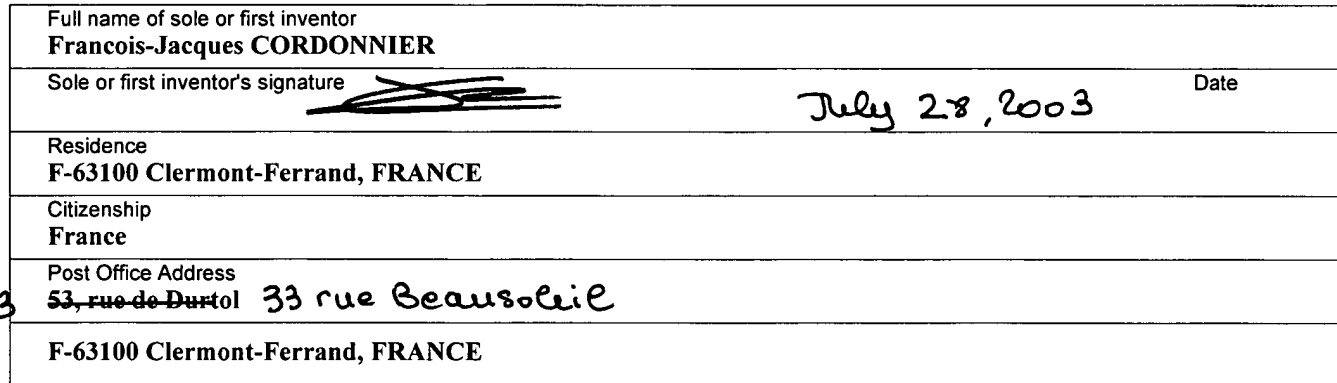 Full name of sole or first inventor
Francois-Jacques CORDONNIER
Sole or first inventor's signature Date
July 28, 2003
Residence
F-63100 Clermont-Ferrand, FRANCE
Citizenship
France
Post Office Address
53, rue de Durtol 33 rue Beausoleil
F-63100 Clermont-Ferrand, FRANCE